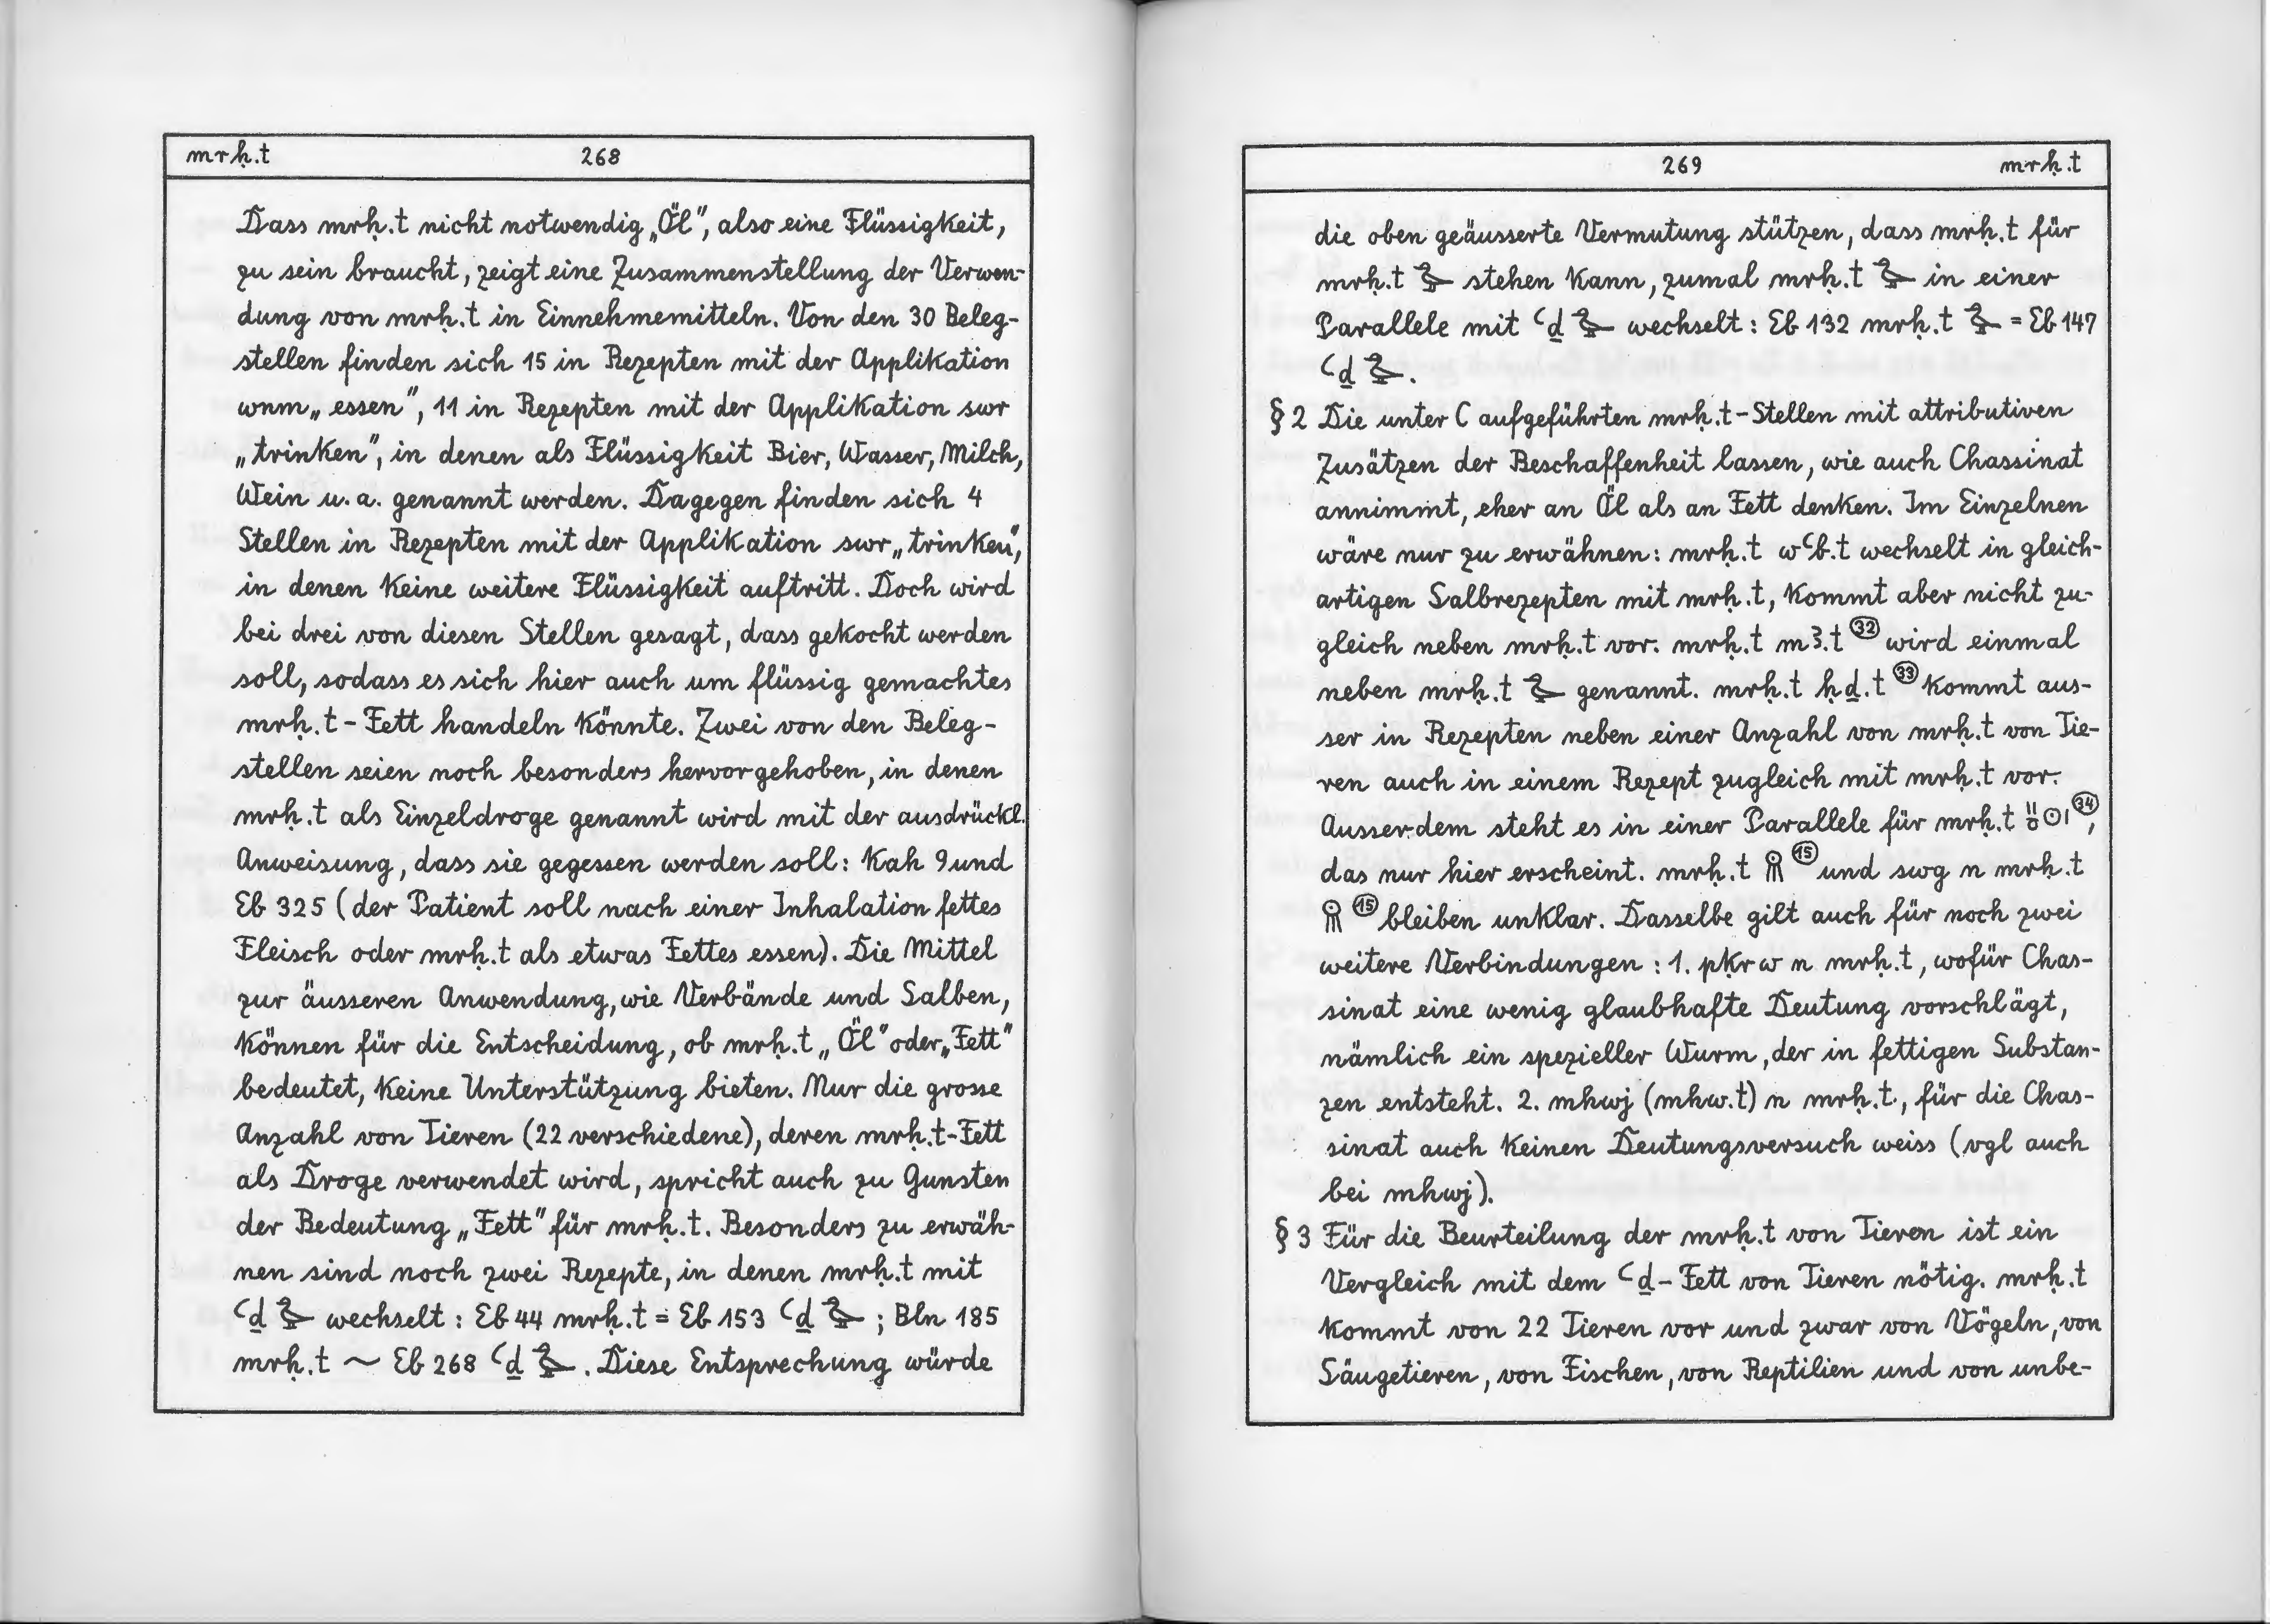 mrḥ.t 268
Dass mrḥ.t nicht notwendig „Öl", also eine Flüssigkeit,
zu sein braucht, zeigt eine Zusammenstellung der Verwen-
dung von mrḥ.t in Einnehmemitteln. Von den 30 Beleg-
stellen finden sich 15 in Rezepten mit der Applikation
wnm „essen", 11 in Rezepten mit der Applikation swr
„trinken", in denen als Flüssigkeit Bier, Wasser, Milch,
Wein u. a. genannt werden. Dagegen finden sich 4
Stellen in Rezepten mit der Applikation swr „trinken",
in denen keine weitere Flüssigkeit auftritt. Doch wird
bei drei von diesen Stellen gesagt, dass gekocht werden
soll, sodass es sich hier auch um flüssig gemachtes
mrḥ.t-Fett handeln könnte. Zwei von den Beleg-
stellen seien noch besonders hervorgehoben, in denen
mrḥ.t als Einzeldroge genannt wird mit der ausdrückl.
Anweisung, dass sie gegessen werden soll: Kah 9 und
Eb 325 (der Patient soll nach einer Inhalation fettes
Fleisch oder mrḥ.t als etwas Fettes essen). Die Mittel
zur äusseren Anwendung, wie Verbände und Salben,
können für die Entscheidung, ob mrḥ.t „Öl" oder „Fett"
bedeutet, keine Unterstützung bieten. Nur die grosse
Anzahl von Tieren (22 verschiedene), deren mrḥ.t-Fett
als Droge verwendet wird, spricht auch zu Gunsten
der Bedeutung „Fett" für mrḥ.t. Besonders zu erwäh-
nen sind noch zwei Rezepte, in denen mrḥ.t mit
ꜥḏ wechselt: Eb 44 mrḥ.t = Eb 153 ꜥḏ ; Bln 185
mrḥ.t ~ Eb 268 ꜥḏ . Diese Entsprechung würde
269 mrḥ.t
die oben geäusserte Vermutung stützen, dass mrḥ.t für
mrḥ.t stehen kann, zumal mrḥ.t in einer
Parallele mit ꜥḏ wechselt: Eb 132 mrḥ.t = Eb 147
ꜥḏ .
§ 2 Die unter C aufgeführten mrḥ.t-Stellen mit attributiven
Zusätzen der Beschaffenheit lassen, wie auch Chassinat
annimmt, eher an Öl als an Fett denken. Im Einzelnen
wäre nur zu erwähnen: mrḥ.t wꜥb.t wechselt in gleich-
artigen Salbrezepten mit mrḥ.t, kommt aber nicht zu-
gleich neben mrḥ.t vor. mrḥ.t mꜣ.t ㉜ wird einmal
neben mrḥ.t genannt. mrḥ.t ḥḏ.t ㉝ kommt aus-
ser in Rezepten neben einer Anzahl von mrḥ.t von Tie-
ren auch in einem Rezept zugleich mit mrḥ.t vor.
Ausserdem steht es in einer Parallele für mrḥ.t ㉞,
das nur hier erscheint. mrḥ.t ⑮ und swg n mrḥ.t
⑮ bleiben unklar. Dasselbe gilt auch für noch zwei
weitere Verbindungen: 1. pḳrw n mrḥ.t, wofür Chas-
sinat eine wenig glaubhafte Deutung vorschlägt,
nämlich ein spezieller Wurm, der in fettigen Substan-
zen entsteht. 2. mhwj (mhw.t) n mrḥ.t., für die Chas-
sinat auch keinen Deutungsversuch weiss (vgl auch
bei mhwj).
§ 3 Für die Beurteilung der mrḥ.t von Tieren ist ein
Vergleich mit dem ꜥḏ-Fett von Tieren nötig. mrḥ.t
kommt von 22 Tieren vor und zwar von Vögeln, von
Säugetieren, von Fischen, von Reptilien und von unbe-